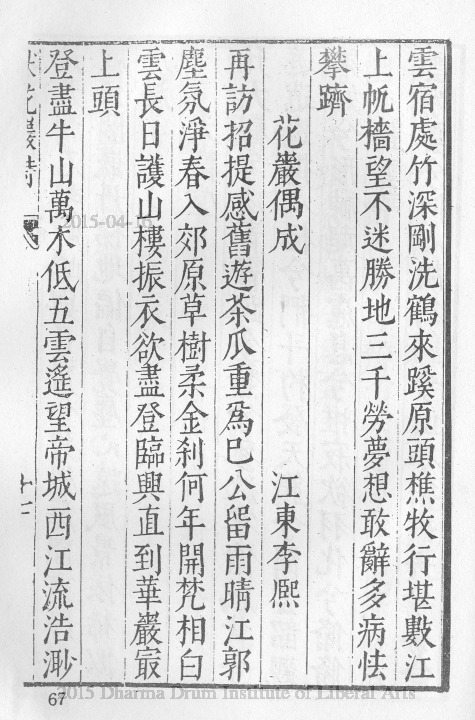 雲宿處竹深剛洗鶴來蹊原頭樵牧行堪數江
上帆檣望不迷勝地三千勞夢想敢辭多病怯
攀躋
花巖偶成 江東李熙
再訪招提感舊遊茶瓜重爲巳公留雨晴江郭
塵氛淨春入郊原草樹柔金刹何年開梵相白
雲長日護山樓振衣欲盡登臨興直到華巖㝡
上頭
登盡牛山萬木低五雲遙望帝城西江流浩渺
獻花巖志
十一
2015-04-16
67
2015 Dharma Drum Institute of Liberal Arts